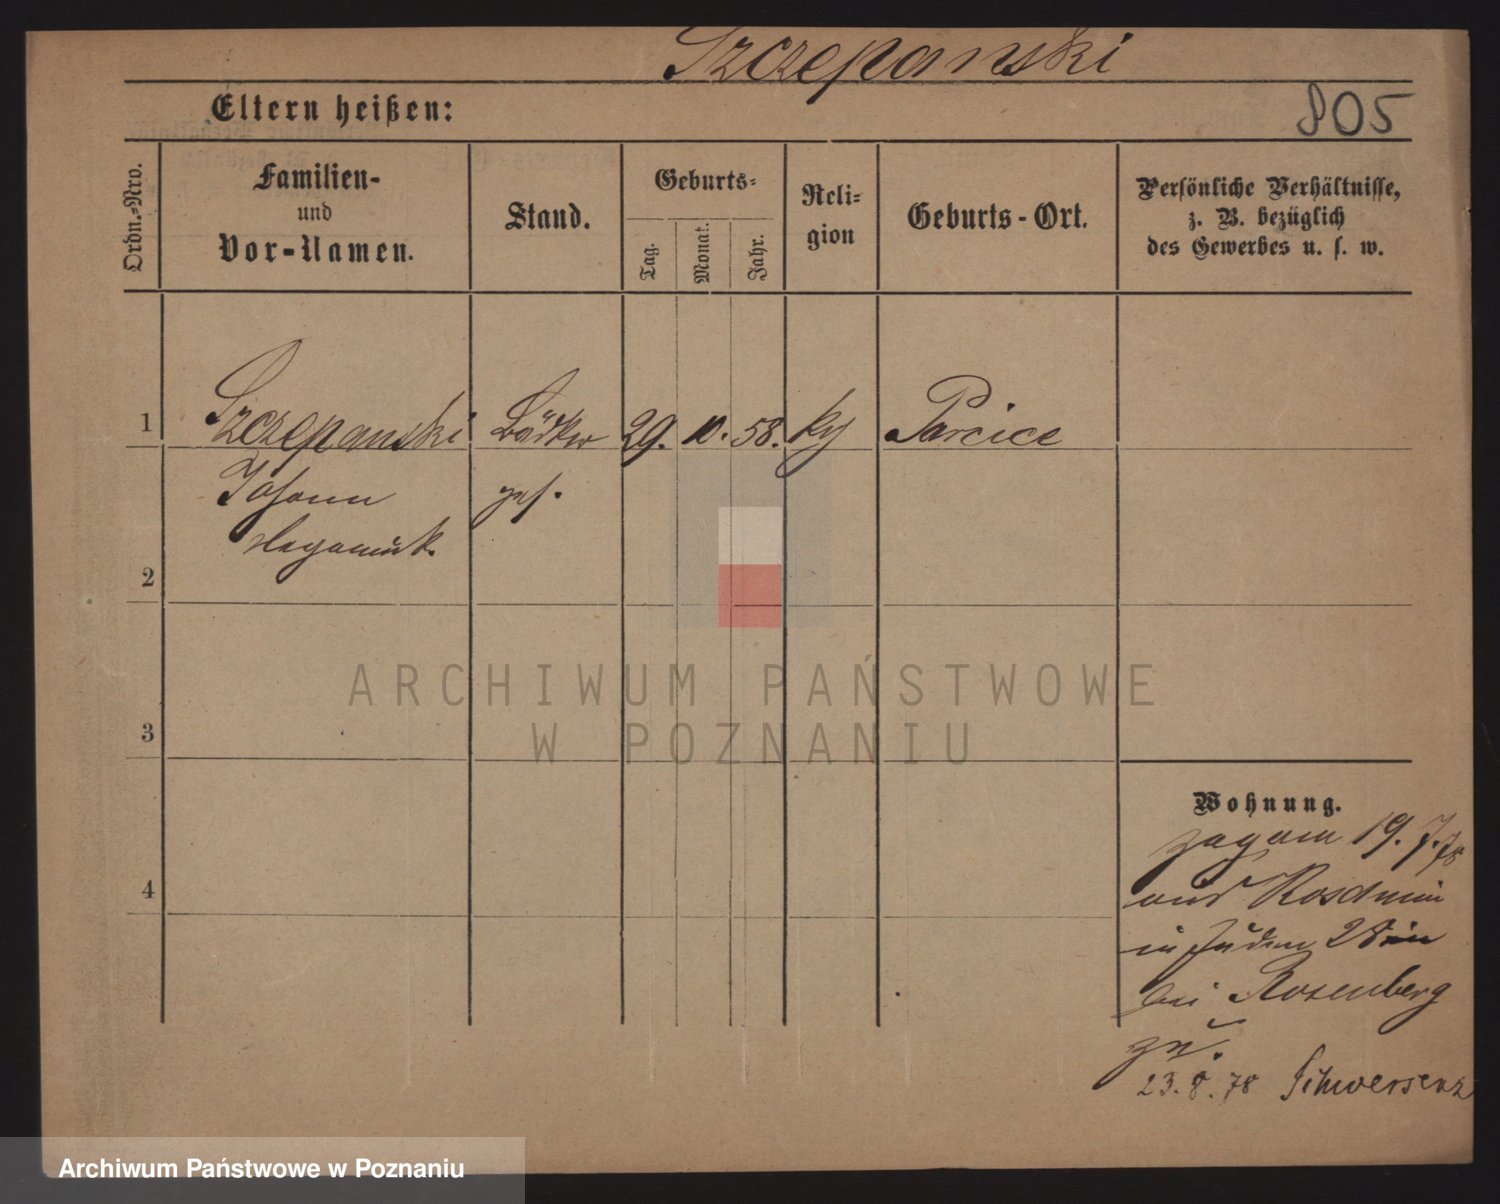 Szczepanski
805
Eltern heißen:
Ordn.-Nro.
Familien-
und
Vor-Namen.
Stand.
Geburts-
Tag.
Monat.
Jahr.
Reli-
gion
Geburts-Ort.
Persönliche Verhältnisse,
z. B. bezüglich
des Gewerbes u. s. w.
1 Szczepanski Bödker 29. 10. 58. Parcice
Johann ges.
2
3
4
ARCHIWUM PAŃSTWOWE
W POZNANIU
Wohnung.
19. 7. 78
aus
Juden 28
bei Rosenberg
zu.
23. 8. 78 Schwersenz
Archiwum Państwowe w Poznaniu